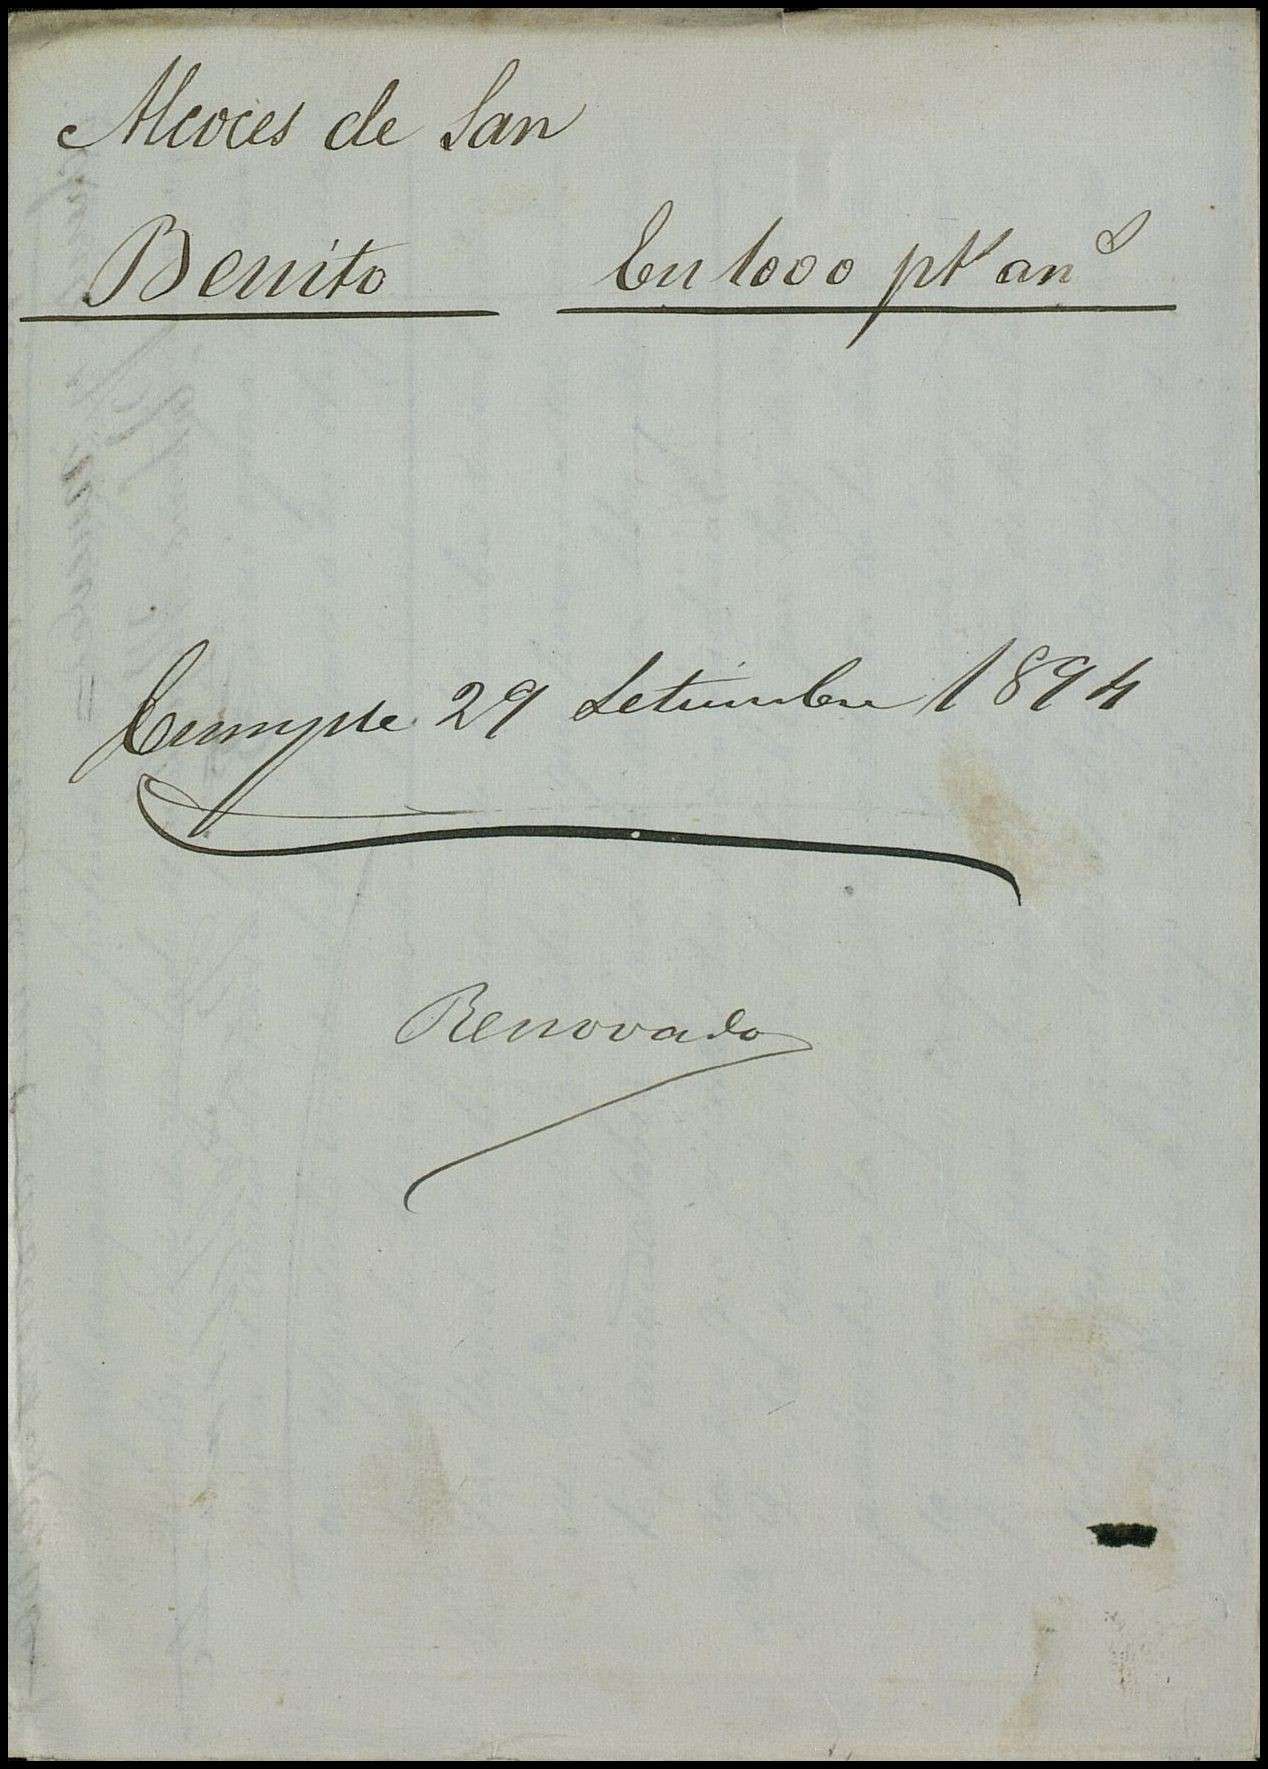 Alcoces de San
Benito En 1000 pts an.s
Cumple 29 Setiembre 1894
Renovado